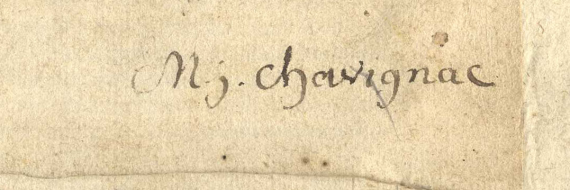 Mj. chavignac